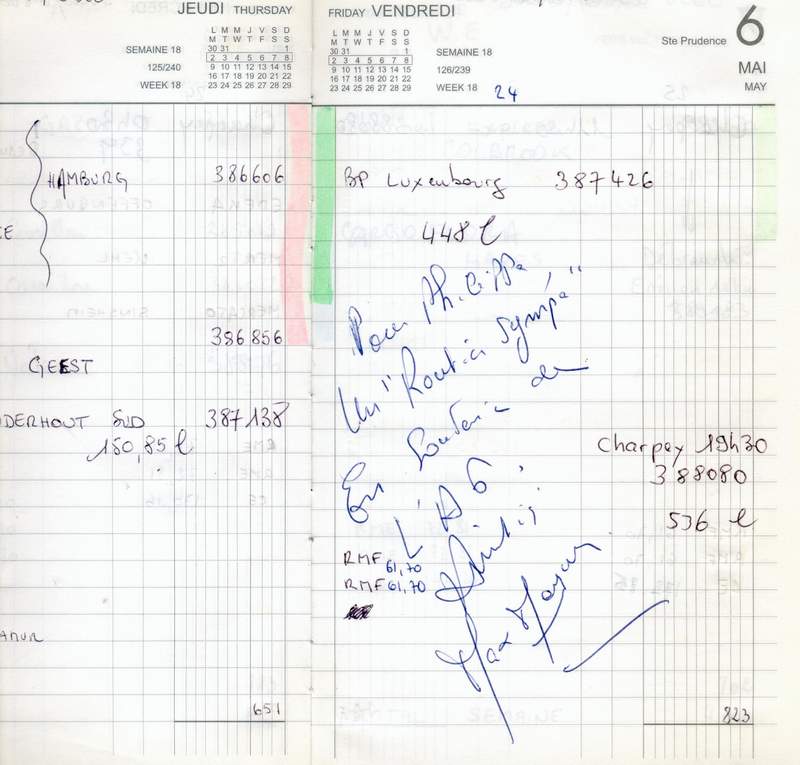 JEUDI THURSDAY
L M M J V S D
M T W T F S S
30 31 1
SEMAINE 18 2 3 4 5 6 7 8
125/240 9 10 11 12 13 14 15
16 17 18 19 20 21 22
WEEK 18 23 24 25 26 27 28 29
HAMBURG 386606
CE
386856
GEEST
DERHOUT SUD 387138
150,85 l
651
FRIDAY VENDREDI
6
L M M J V S D
M T W T F S S
Ste Prudence
30 31 1
2 3 4 5 6 7 8 SEMAINE 18
9 10 11 12 13 14 15 126/239
MAI
16 17 18 19 20 21 22
23 24 25 26 27 28 29 WEEK 18 24
MAY
BP Luxenbourg 387426
448 l
Pour Philippe,
Un "Routier sympa"
En Souvenir de
L'A6.
Amitiés
Max Meynier
Charpey 19h30
388080
536 l
RMF 61,70
RMF 61,70
823